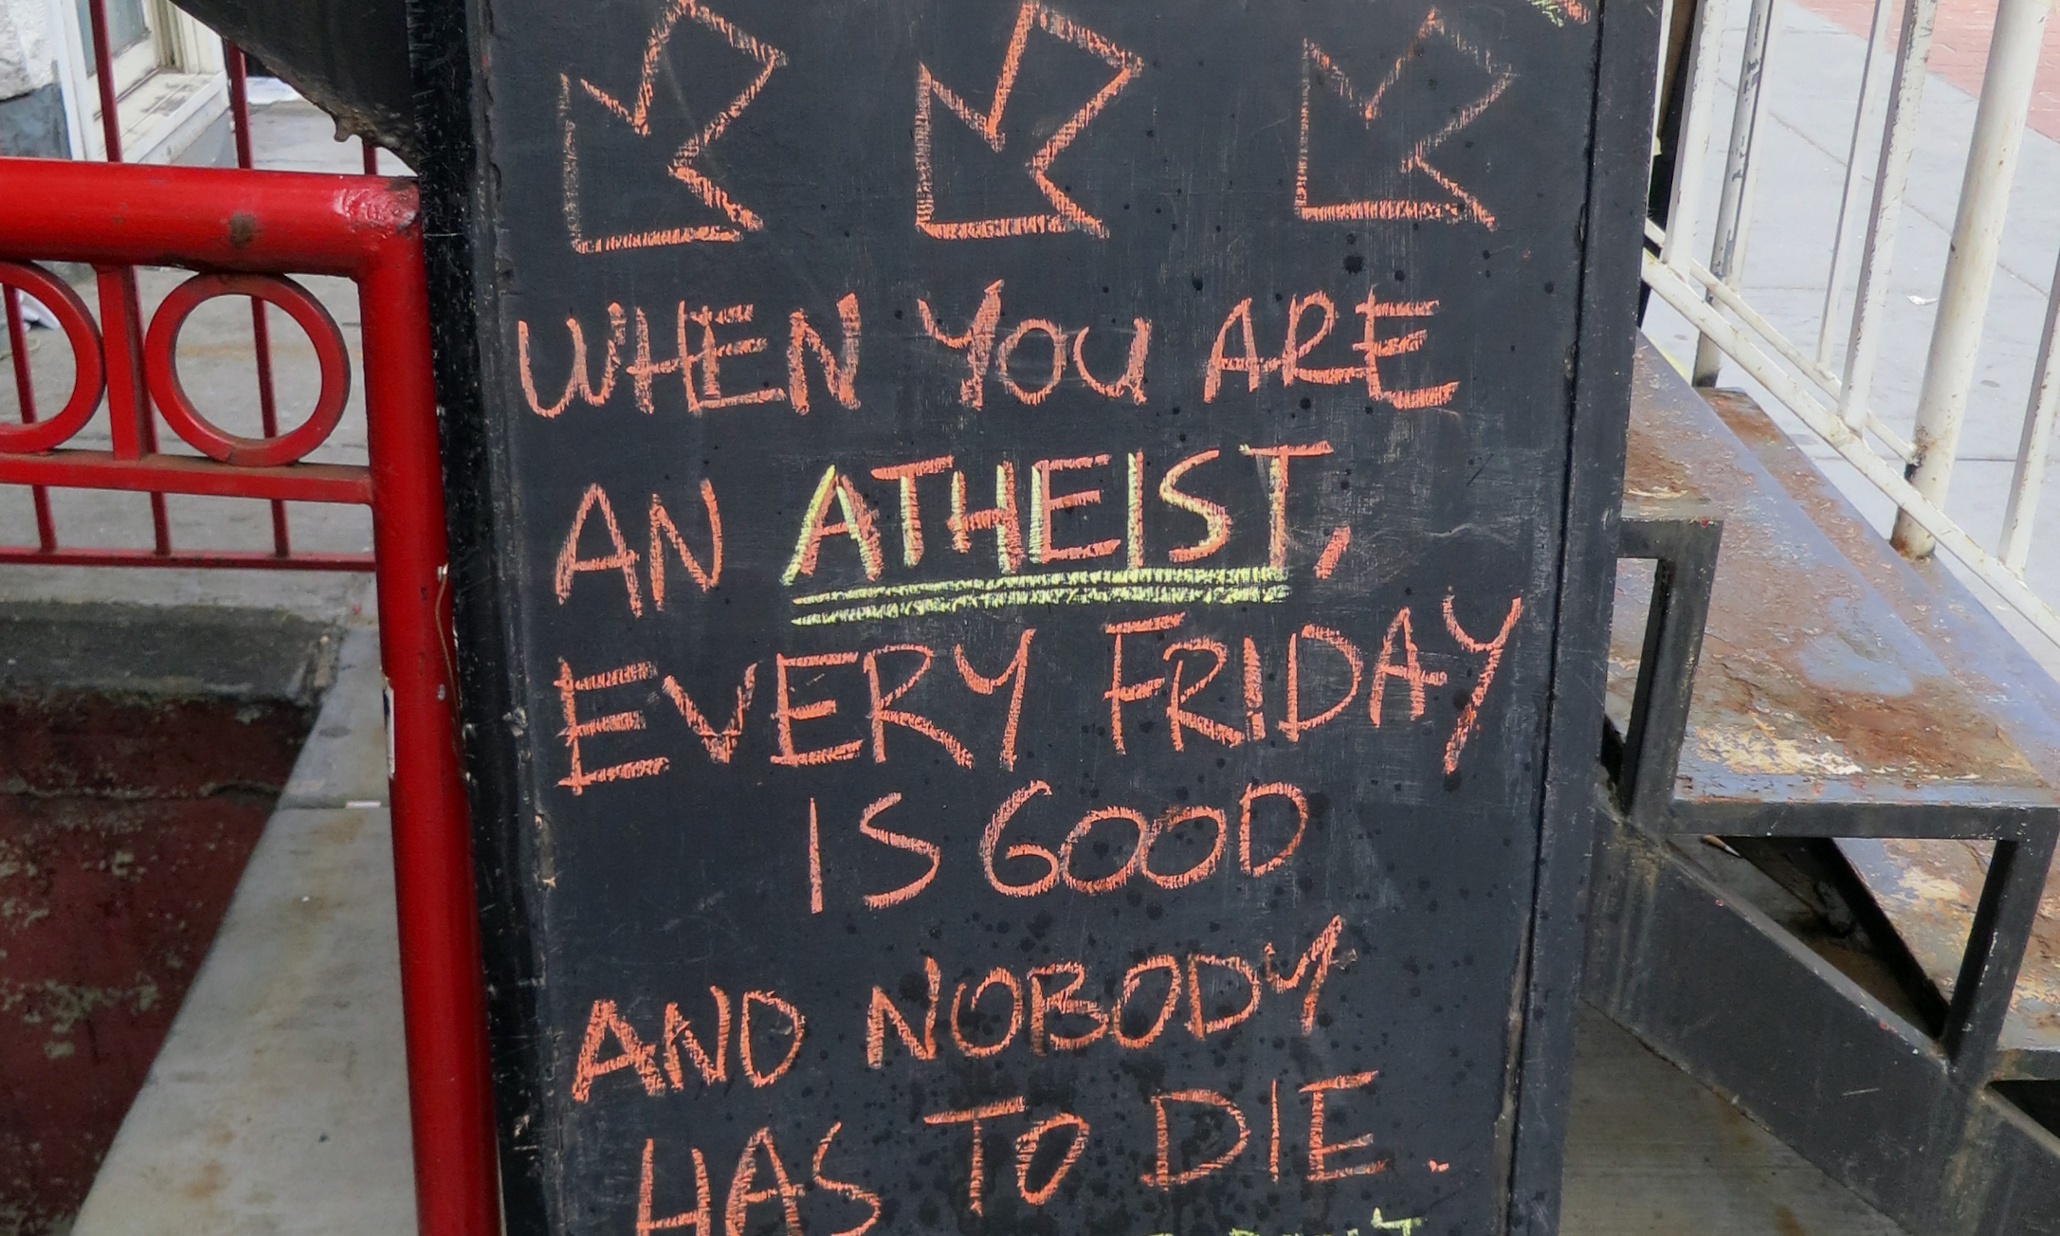 WHEN YOU ARE
AN ATHEIST,
EVERY FRIDAY
IS GOOD
AND NOBODY
HAS TO DIE.